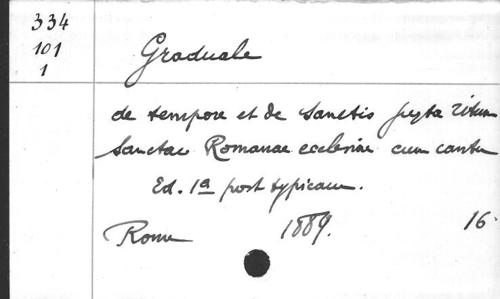 334
101
1
Graduale
de tempore et de Sanctis juxta ritum
Sanctae Romanae ecclesiae cum cantu
Ed. 1a post typicam.
Rome 1889. 16.